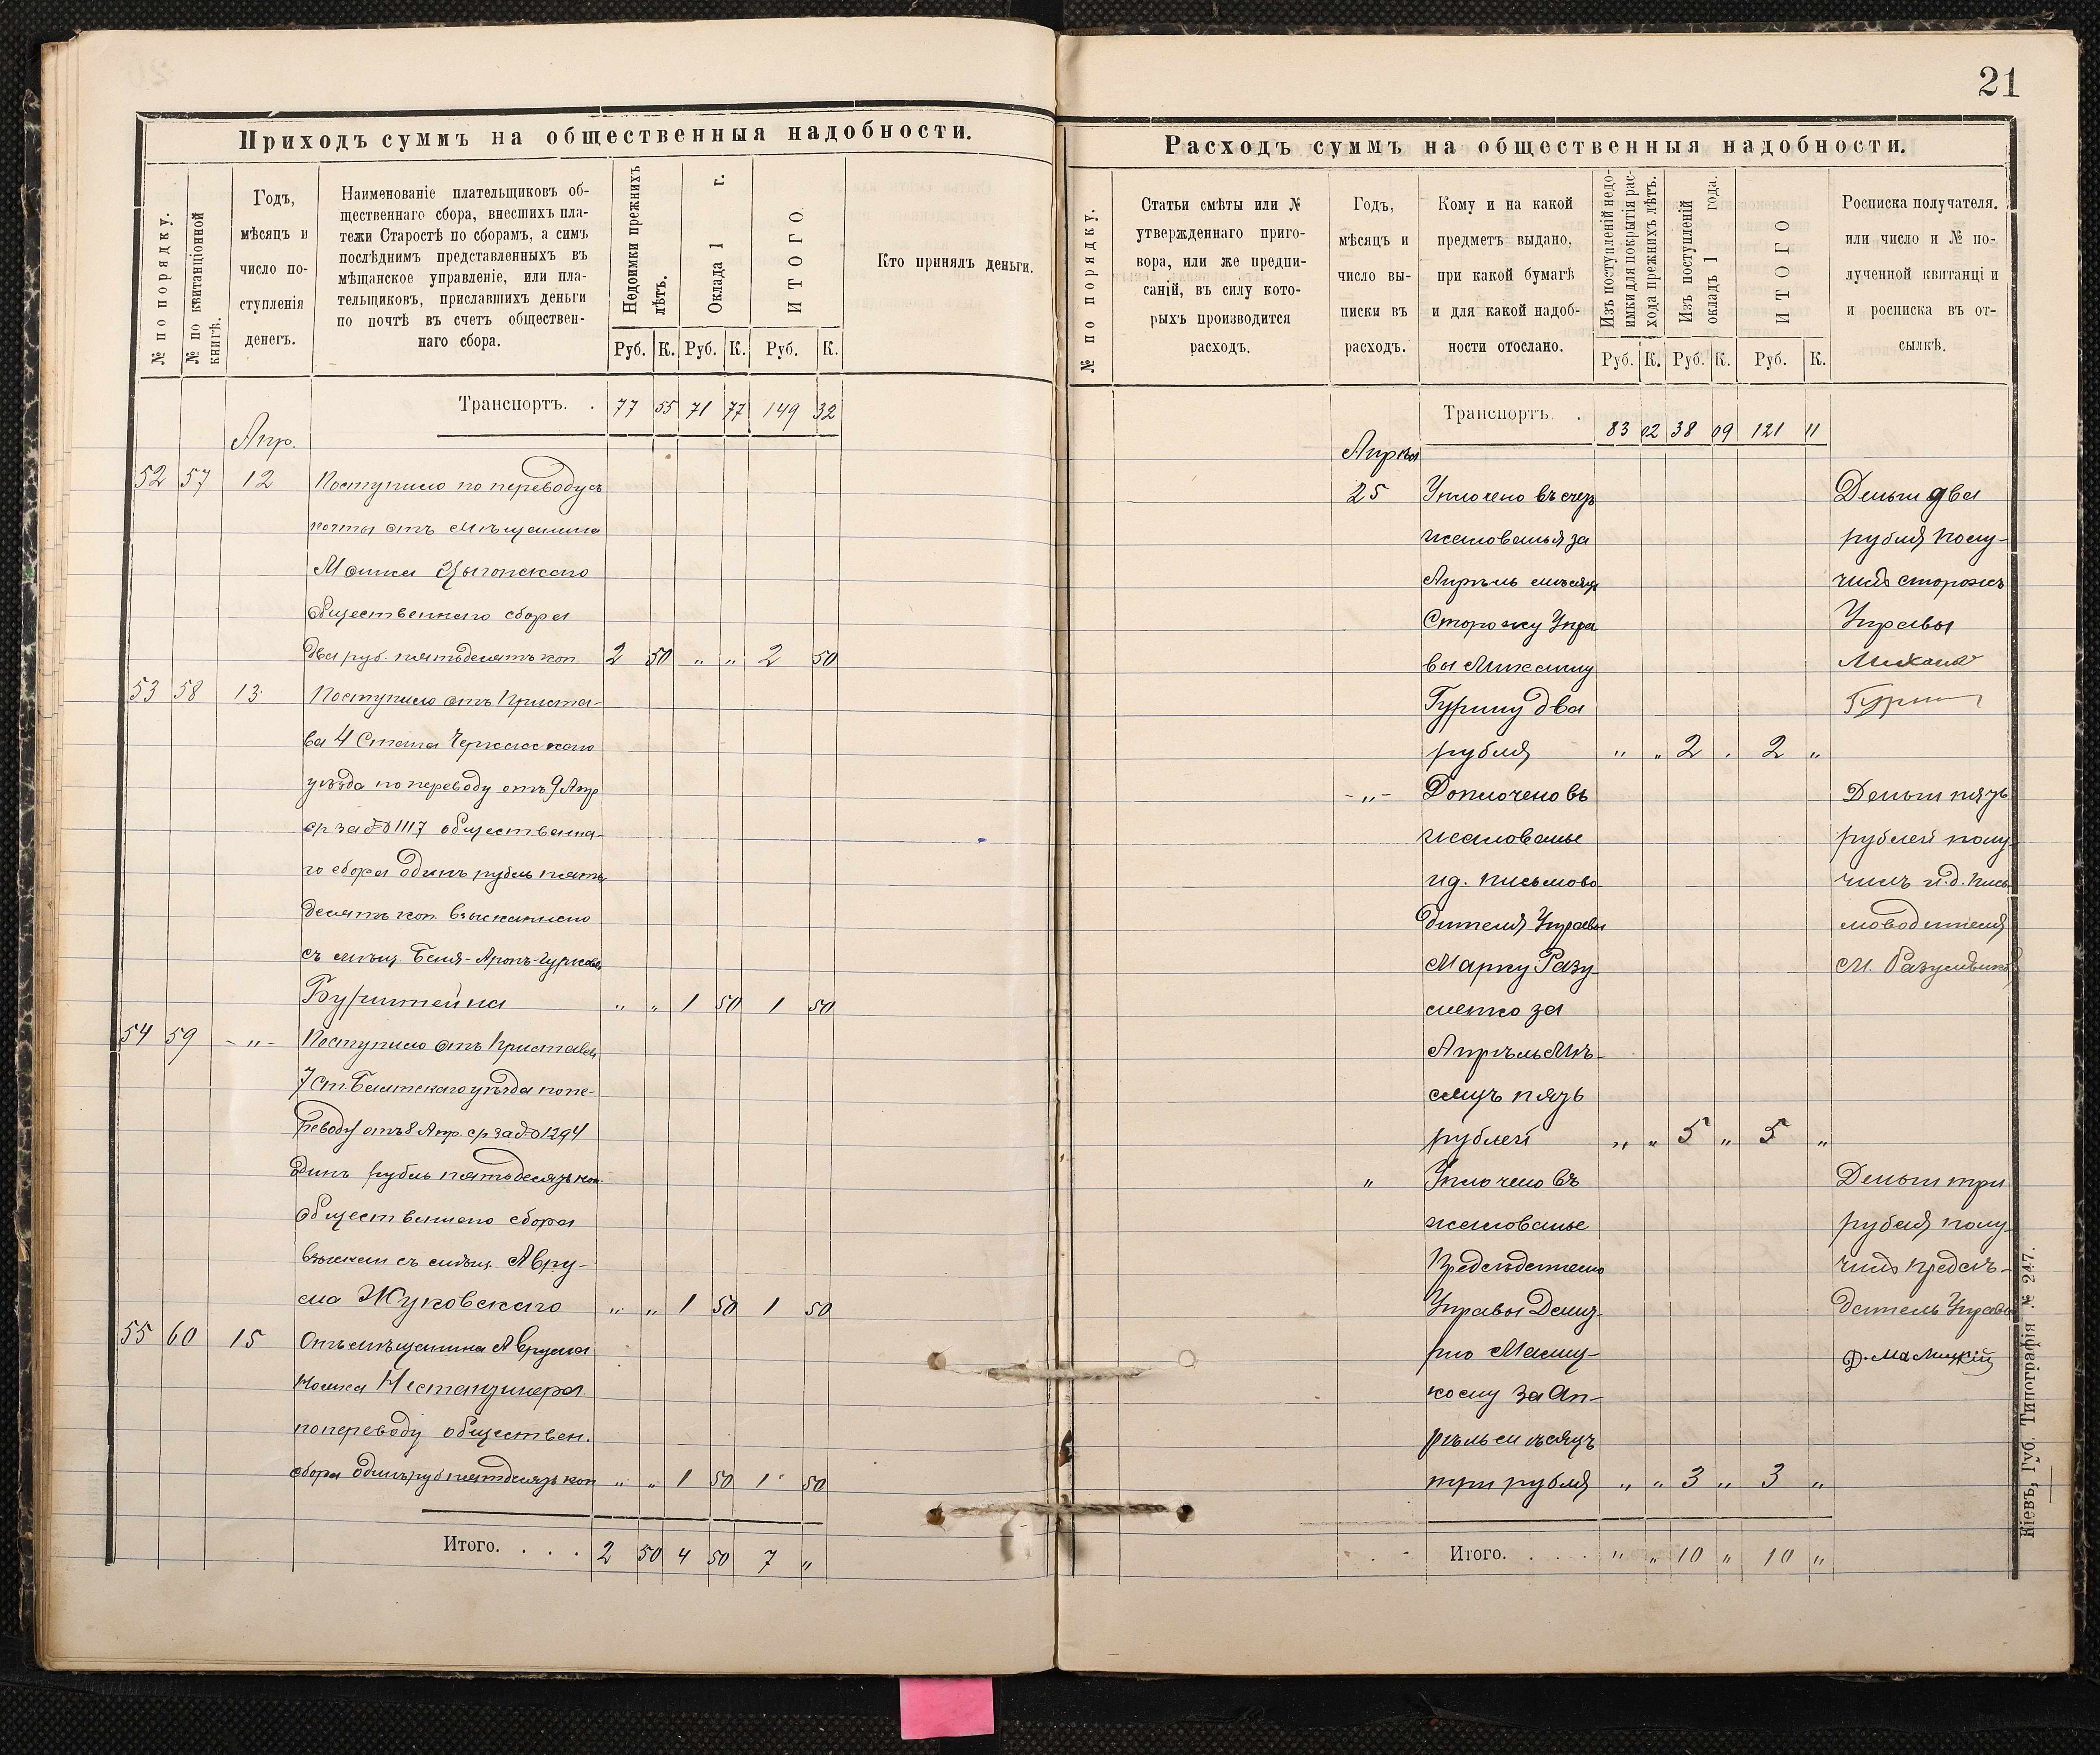 21
Приходъ суммъ на общественныя надобности.
№ по порядку.
№ по квитанціонной книгѣ.
Годъ,
мѣсяцъ и
число по-
ступленія
денегъ.
Наименованіе плательщиковъ об-
щественнаго сбора, внесшихъ пла-
тежи Старостѣ по сборамъ, а симъ
послѣднимъ представленныхъ въ
мѣщанское управленіе, или пла-
тельщиковъ, приславшихъ деньги
по почтѣ въ счетъ обществен-
наго сбора.
Недоимки прежнихъ лѣтъ.
Оклада 1 г.
ИТОГО
Руб. К. Руб. К. Руб. К.
Кто принялъ деньги.
Транспортъ. . 77 55 71 77 149 32
Апр.
52 57 12 Поступило по переводу съ
почты отъ мѣщанина
Мошка
общественнаго сбора
два руб. пятьдесятъ коп. 2 50 " " 2 50
53 58 13 Поступило отъ Приста-
ва 4 Стана Черкасскаго
уѣзда по переводу отъ 9 Апр
ср за № 1117 общественна-
го сбора одинъ рубль пять
десятъ коп. взысканнаго
съ мѣщ. Беня-Аронъ-
Буриштейна " " 1 50 1 50
54 59 -"- Поступило отъ Пристава
7 Ст. Балтскаго уѣзда по пе-
реводу отъ 8 Апр. ср за № 1294
одинъ рубль пятьдесятъ коп.
общественнаго сбора
взыскан съ мѣщ. Авру-
ма Жуковскаго " " 1 50 1 50
55 60 15 Отъ мѣщанина Аврума
Мошка Нестанцинера
по переводу обществен.
сбора одинъ руб пятдесятъ коп " " 1 50 1 50
Итого. . . . 2 50 4 50 7 "
Расходъ суммъ на общественныя надобности.
№ по порядку.
Статьи смѣты или №
утвержденнаго приго-
вора, или же предпи-
саній, въ силу кото-
рыхъ производится
расходъ.
Годъ,
мѣсяцъ и
число вы-
писки въ
расходъ.
Кому и на какой
предметъ выдано,
при какой бумагѣ
и для какой надоб-
ности отослано.
Изъ поступленій недо-
имки для покрытія рас-
хода прежнихъ лѣтъ.
Изъ поступленій
окладъ 1 года.
ИТОГО
Руб. К. Руб. К. Руб. К.
Росписка получателя.
или число и № по-
лученной квитанціи
и росписка въ от-
сылкѣ.
Транспортъ. . 83 02 38 09 121 11
Апрѣля
25 Уплочено въ счетъ Деньги два
жалованья за рубля полу-
Апрѣль мѣсяцъ чилъ сторожъ
Сторожу Упра Управы
вы Михаилу Михаил
Гурину два Гурин
рубля " " 2 . 2 "
-"- Доплочено въ Деньги пять
жалованье рублей полу-
и д. письмово- чилъ и.д. Пись
дителя Управы моводителя
Марку Разу- М. Разуменко
менко за
Апрѣль мѣ-
сяцъ пять
рублей " " 5 " 5 "
" Уплочено въ Деньги три
жалованье рубля полу-
Предсѣдателю чилъ предсѣ-
Управы Дми- датель Управы
рію Малиц- Д. Малицкій
кому за Ап-
рѣль мѣсяцъ
три рубля " " 3 " 3 "
Итого. . . . " " 10 " 10 "
Кіевъ, Губ. Типографія № 247.